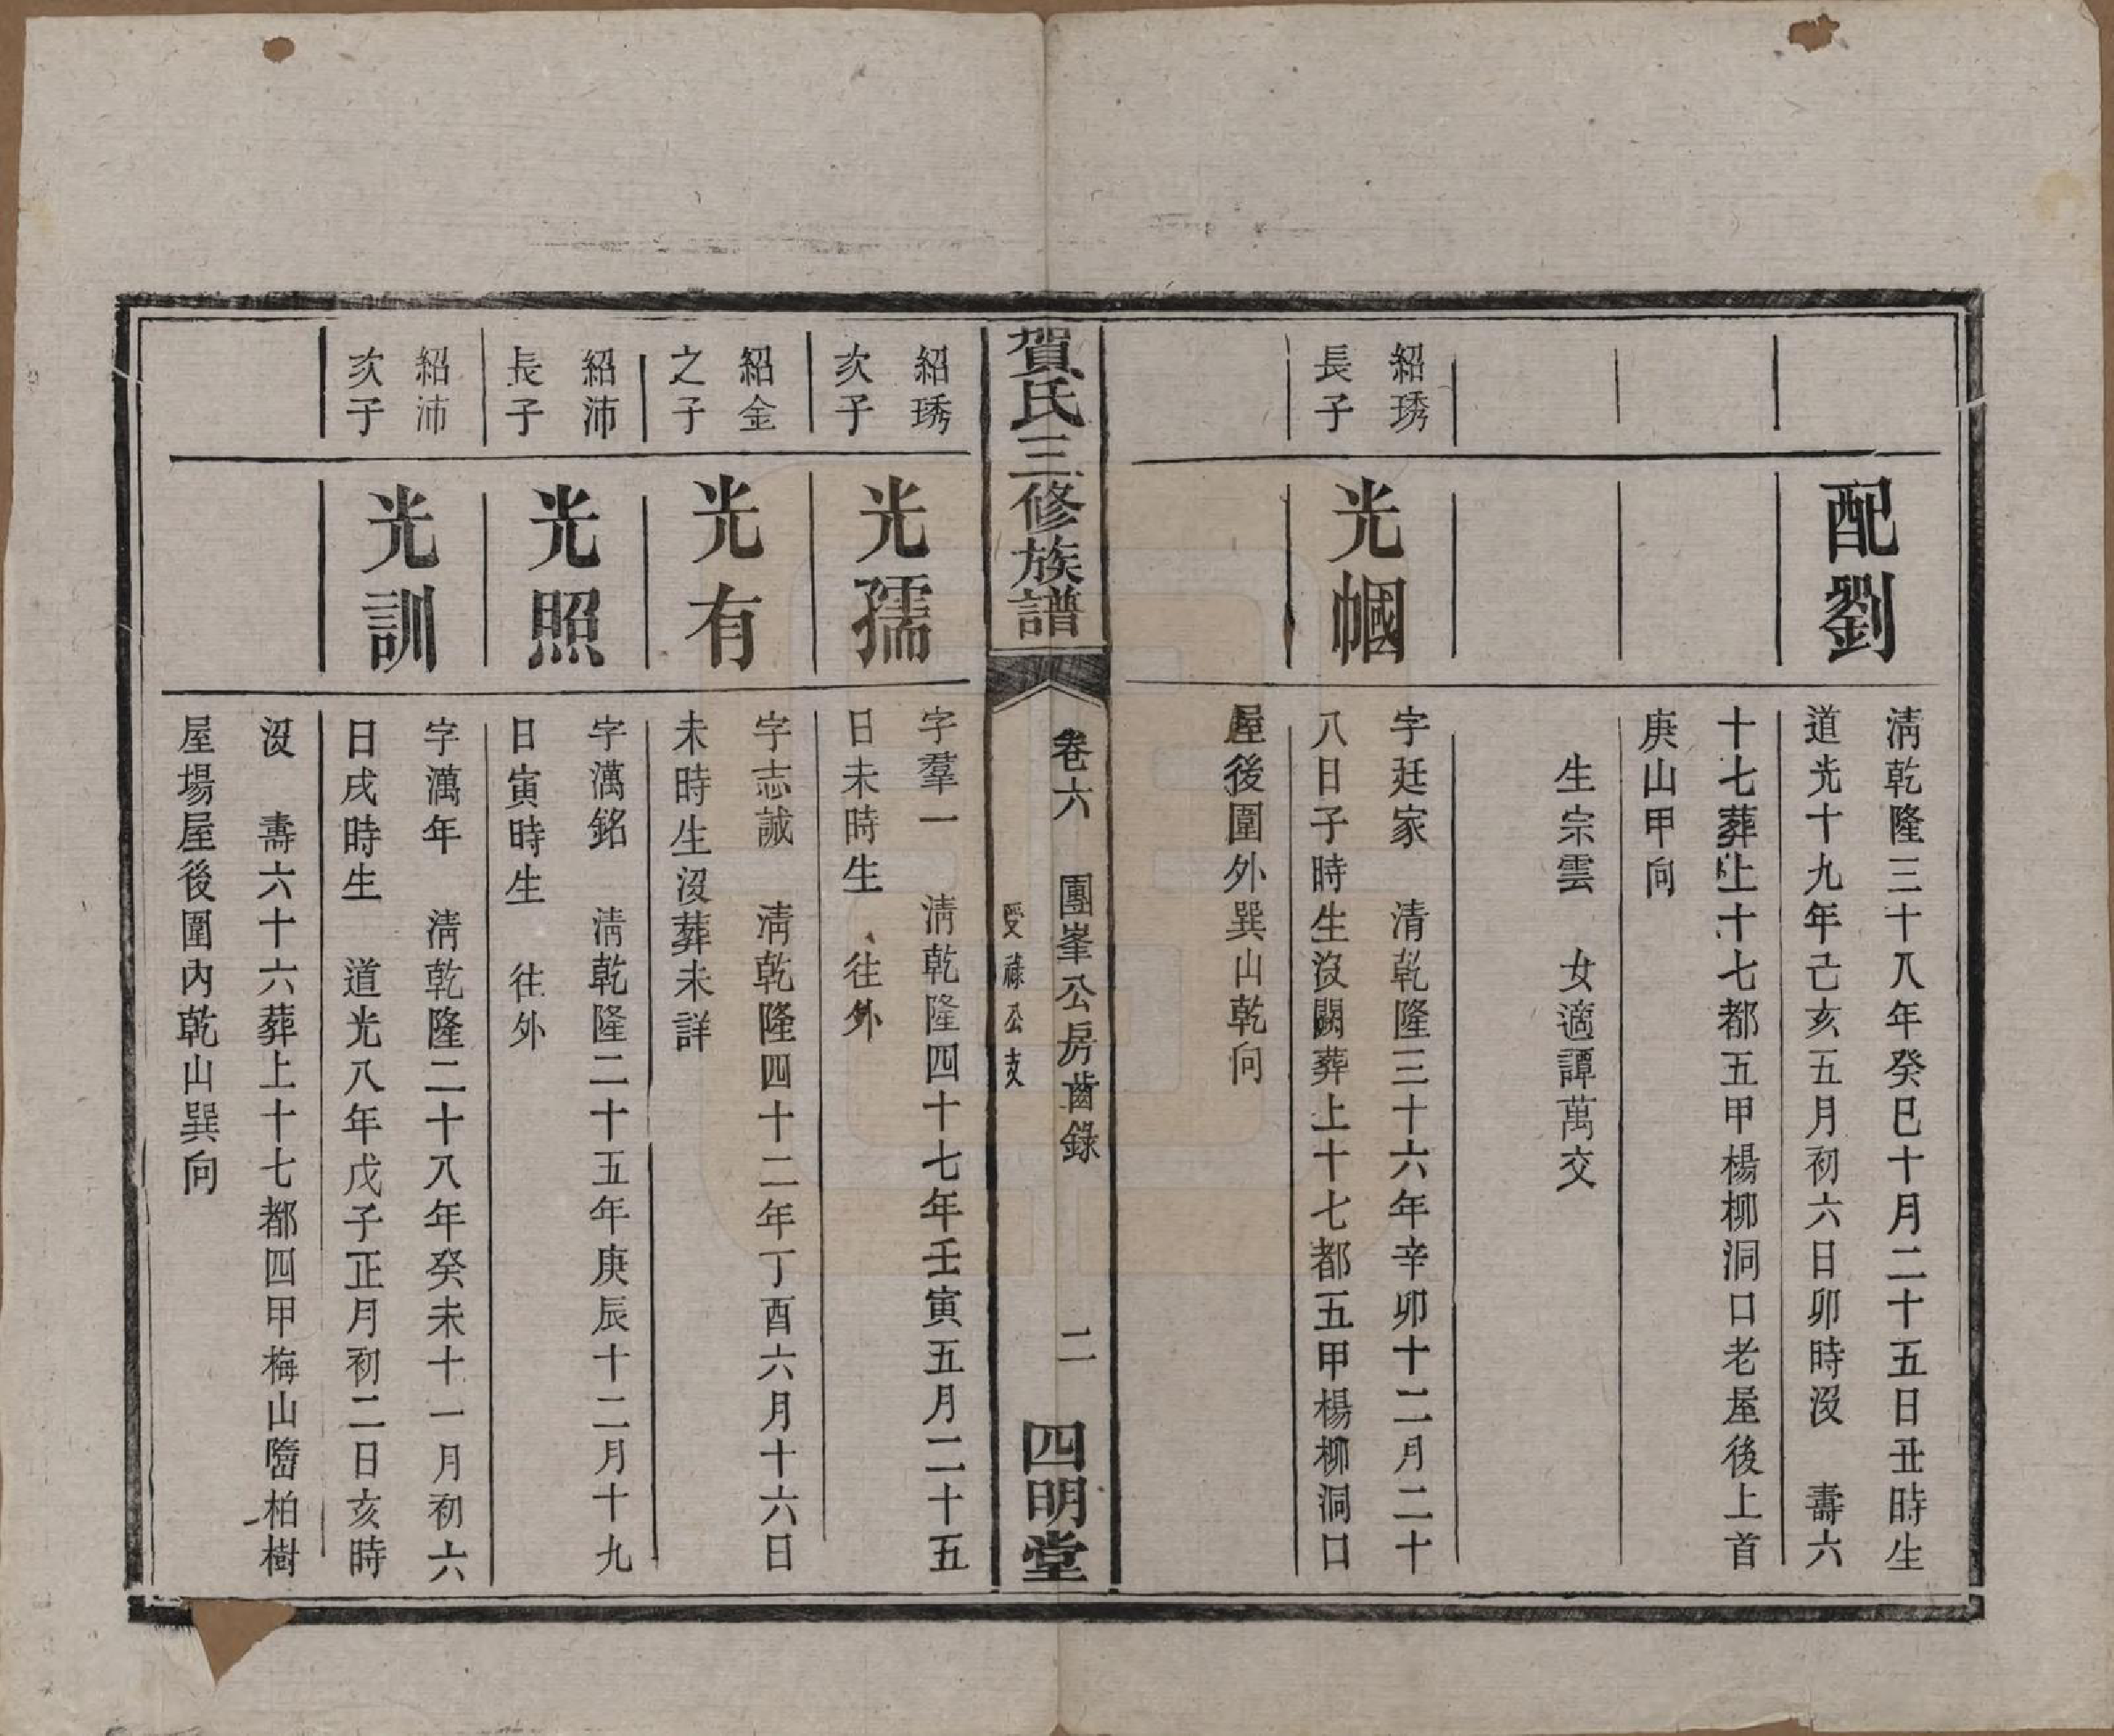 配劉
清乾隆三十八年癸巳十月二十五日丑時生
道光十九年己亥五月初六日卯時沒　壽六
十七葬上十七都五甲楊柳洞口老屋後上首
庚山甲向
生宗雲　女適譚萬交
紹琇
長子
光幗
字廷家　清乾隆三十六年辛卯十二月二十
八日子時生沒闕葬上十七都五甲楊柳洞口
屋後圍外巽山乾向
賀氏三修族譜
卷六　團峯公房齒錄
受祿公支
二
四明堂
紹琇
次子
光孺
字羣一　清乾隆四十七年壬寅五月二十五
日未時生　往外
紹金
之子
光有
字志誠　清乾隆四十二年丁酉六月十六日
未時生沒葬未詳
紹沛
長子
光照
字滿銘　清乾隆二十五年庚辰十二月十九
日寅時生　往外
紹沛
次子
光訓
字滿年　清乾隆二十八年癸未十一月初六
日戌時生　道光八年戊子正月初二日亥時
沒　壽六十六葬上十七都四甲梅山㽀柏樹
屋場屋後圍內乾山巽向